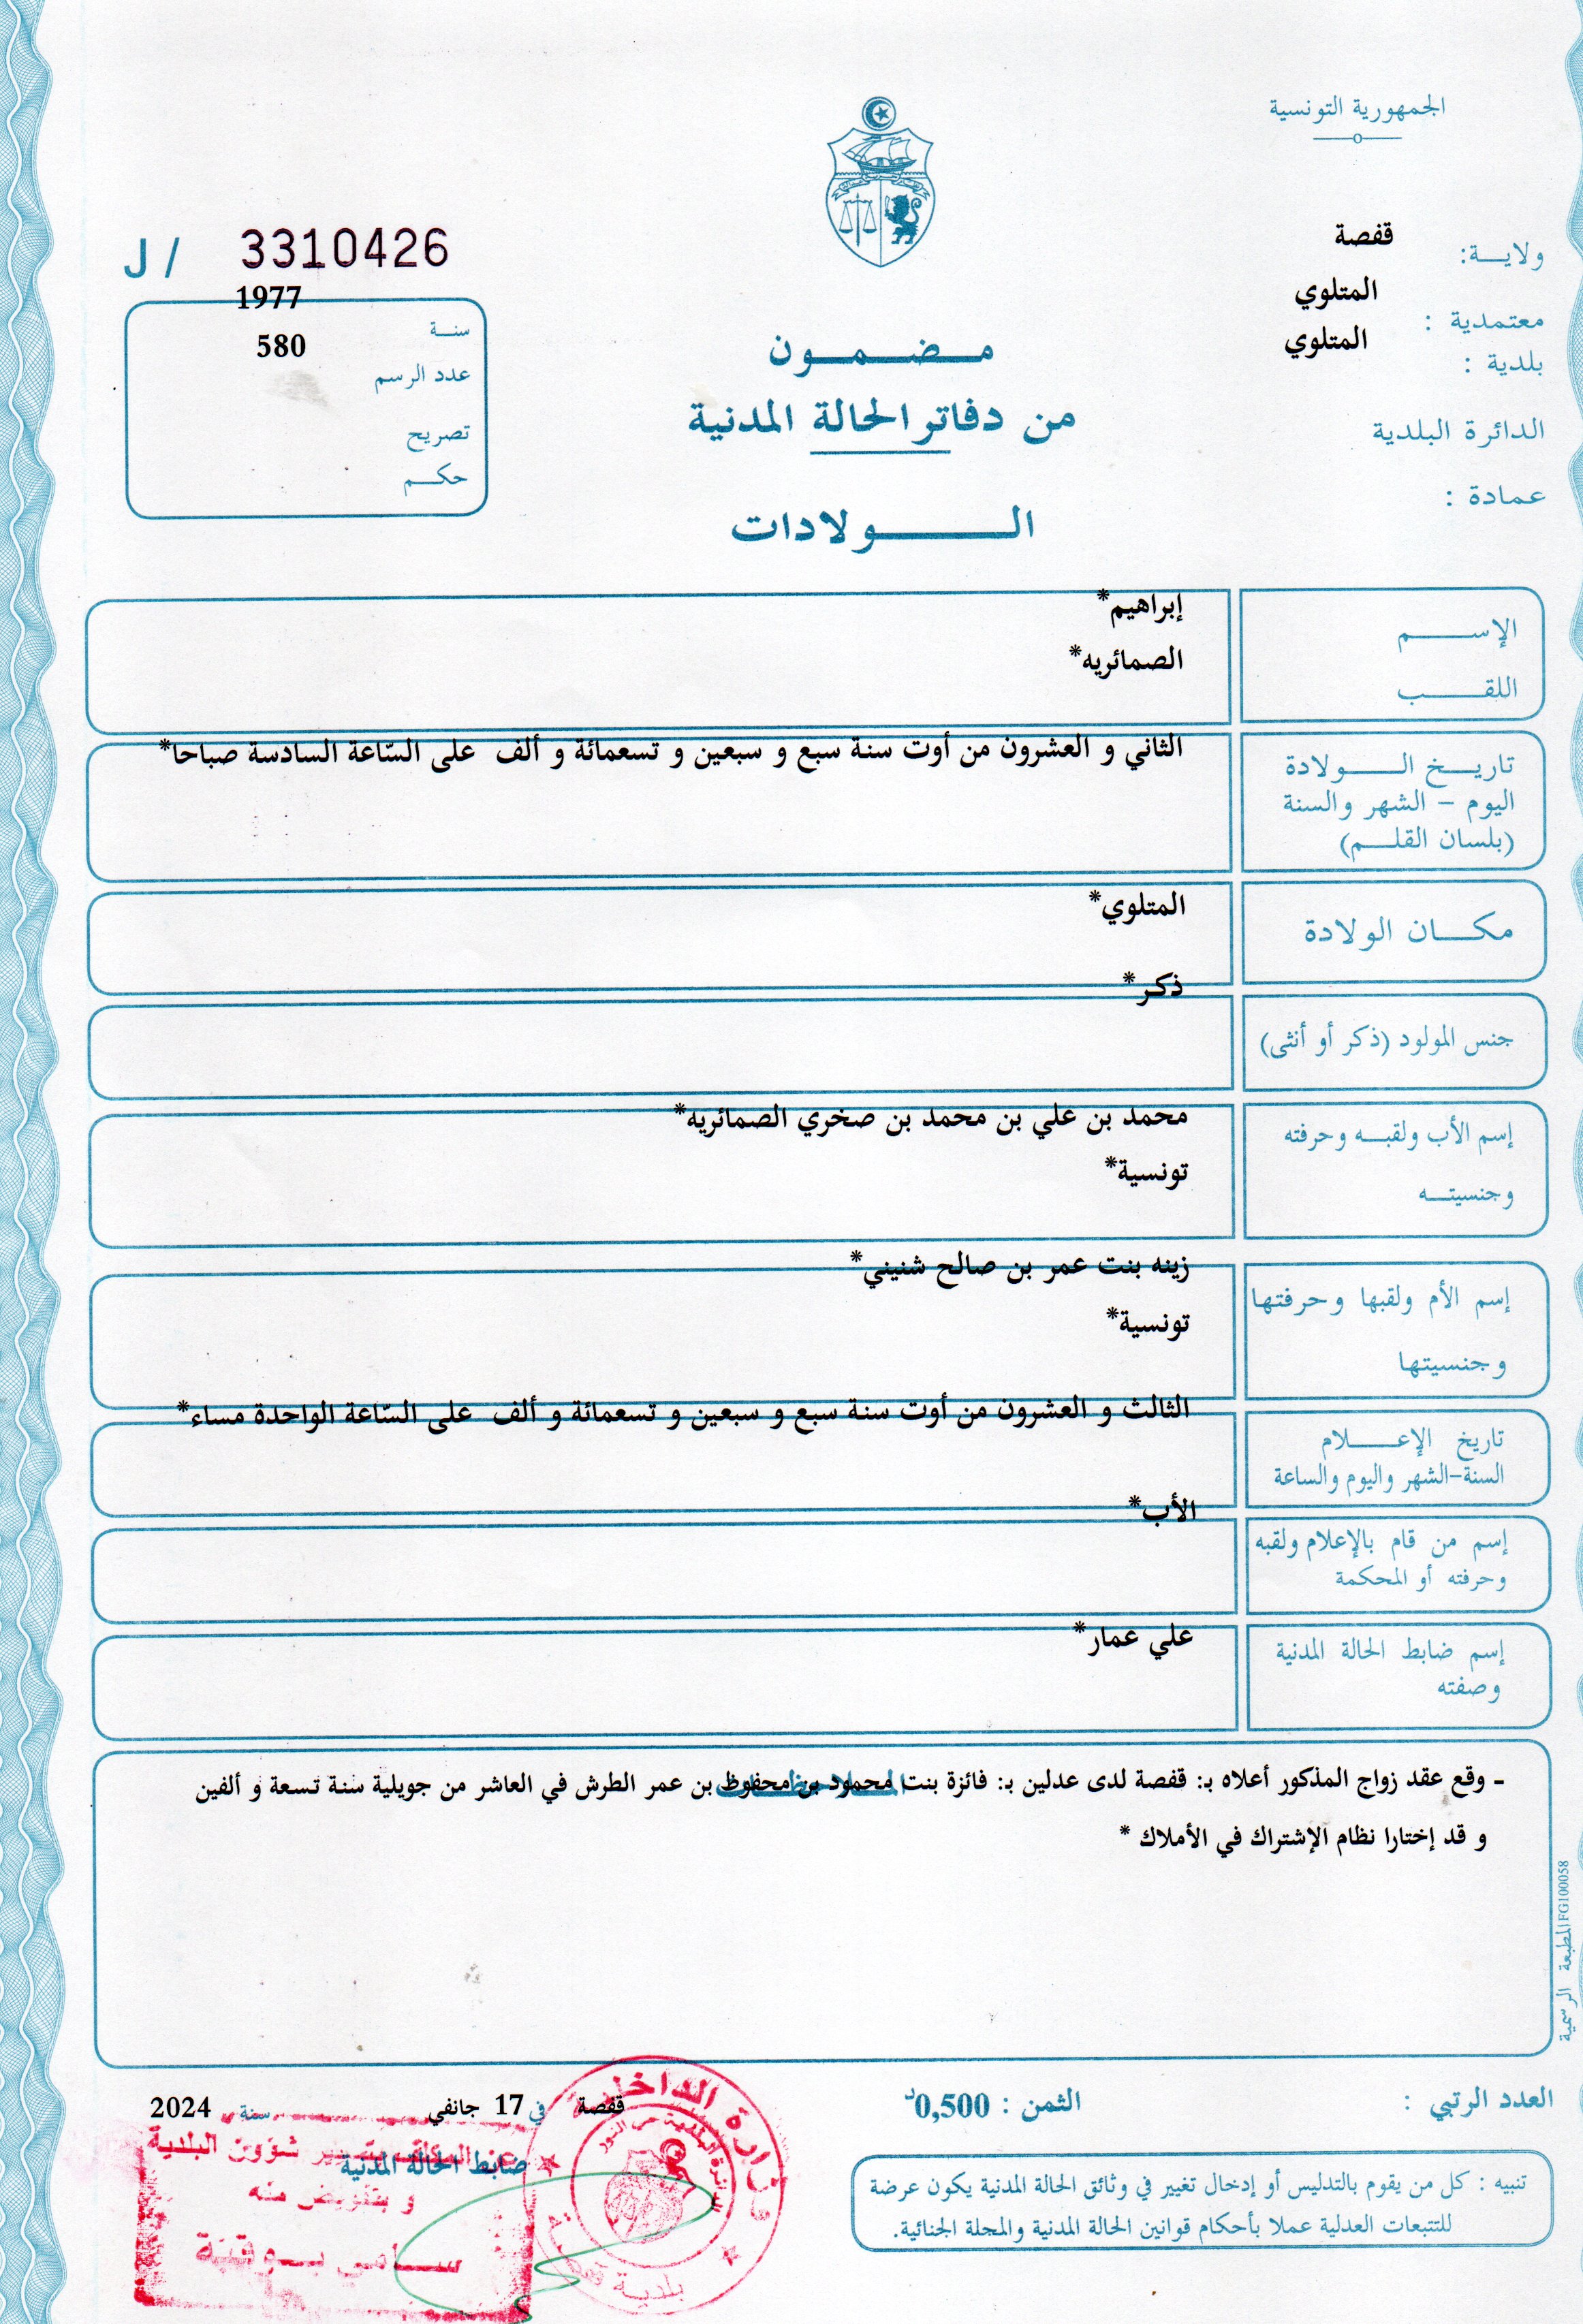 الجمهورية التونسية
ولايـــة: قفصة
معتمدية : المتلوي
بلدية : المتلوي
الدائرة البلدية
عمادة :
مـضـمـون
من دفاتر الحالة المدنية
الـولادات
J / 3310426
سنـة 1977
عدد الرسم 580
تصريح
حكـم
الإسـم إبراهيم*
اللقـب الصمائريه*
تاريـخ الـولادة
اليوم – الشهر والسنة
(بلسان القلـم)
الثاني و العشرون من أوت سنة سبع و سبعين و تسعمائة و ألف على السّاعة السادسة صباحا*
مكـان الولادة المتلوي*
جنس المولود (ذكر أو أنثى) ذكر*
إسم الأب ولقبـه وحرفته
وجنسيتـه
محمد بن علي بن محمد بن صخري الصمائريه*
تونسية*
إسم الأم ولقبها وحرفتها
وجنسيتها
زينه بنت عمر بن صالح شنيني*
تونسية*
تاريخ الإعـلام
السنة-الشهر واليوم والساعة
الثالث و العشرون من أوت سنة سبع و سبعين و تسعمائة و ألف على السّاعة الواحدة مساء*
إسم من قام بالإعلام ولقبه
وحرفته أو المحكمة
الأب*
إسم ضابط الحالة المدنية
وصفته
علي عمار*
- وقع عقد زواج المذكور أعلاه بـ: قفصة لدى عدلين بـ: فائزة بنت محمود بن محفوظ بن عمر الطرش في العاشر من جويلية سنة تسعة و ألفين
و قد إختارا نظام الإشتراك في الأملاك *
المطبعة الرسمية FG100058
العدد الرتبي :
الثمن : 0,500د
قفصة في 17 جانفي سنة 2024
ضابط الحالة المدنية
شؤون البلدية
و بتفويض منه
سـامي بـوقنة
وزارة الداخلية
بلدية
تنبيه : كل من يقوم بالتدليس أو إدخال تغيير في وثائق الحالة المدنية يكون عرضة
للتتبعات العدلية عملا بأحكام قوانين الحالة المدنية والمجلة الجنائية.